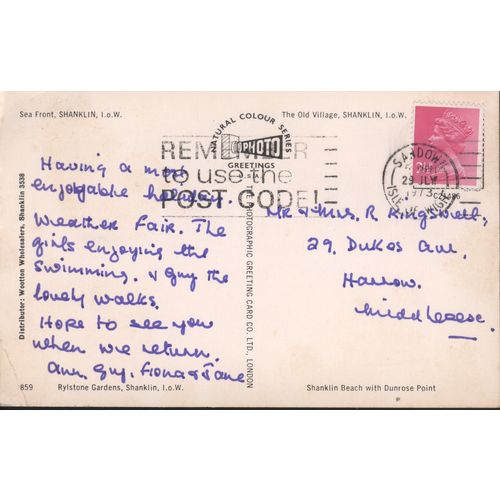 Sea Front, SHANKLIN, I.o.W.
The Old Village, SHANKLIN, I.o.W.
NATURAL COLOUR SERIES
PHOTO
GREETINGS
REMEMBER
to use the
POST CODE!
SANDOWN
29 JLY
1973
ISLE OF WIGHT
Having a most
enjoyable holiday.
Weather Fair. The
girls enjoying the
swimming. & Guy the
lovely walks.
Hope to see you
when we return.
Ann, Guy, Fiona & Jane
Mr & Mrs. R. Ringswell,
29. Dukes Ave,
Harrow.
Middlesex.
Distributor: Wootton Wholesalers, Shanklin 3338
THE PHOTOGRAPHIC GREETING CARD CO. LTD., LONDON
859
Rylstone Gardens, Shanklin, I.o.W.
Shanklin Beach with Dunrose Point